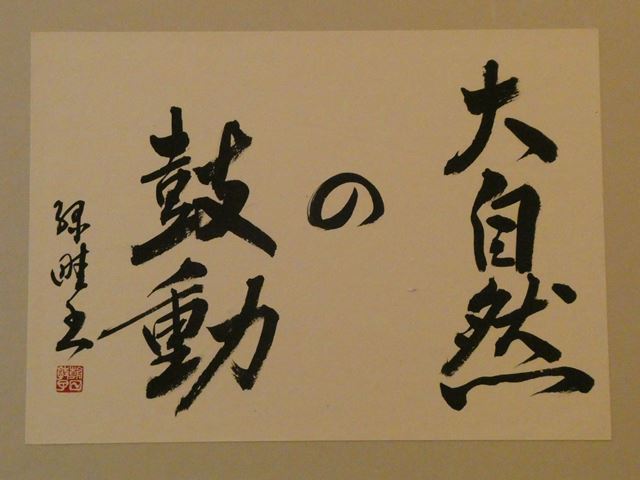 大自然
の
鼓動